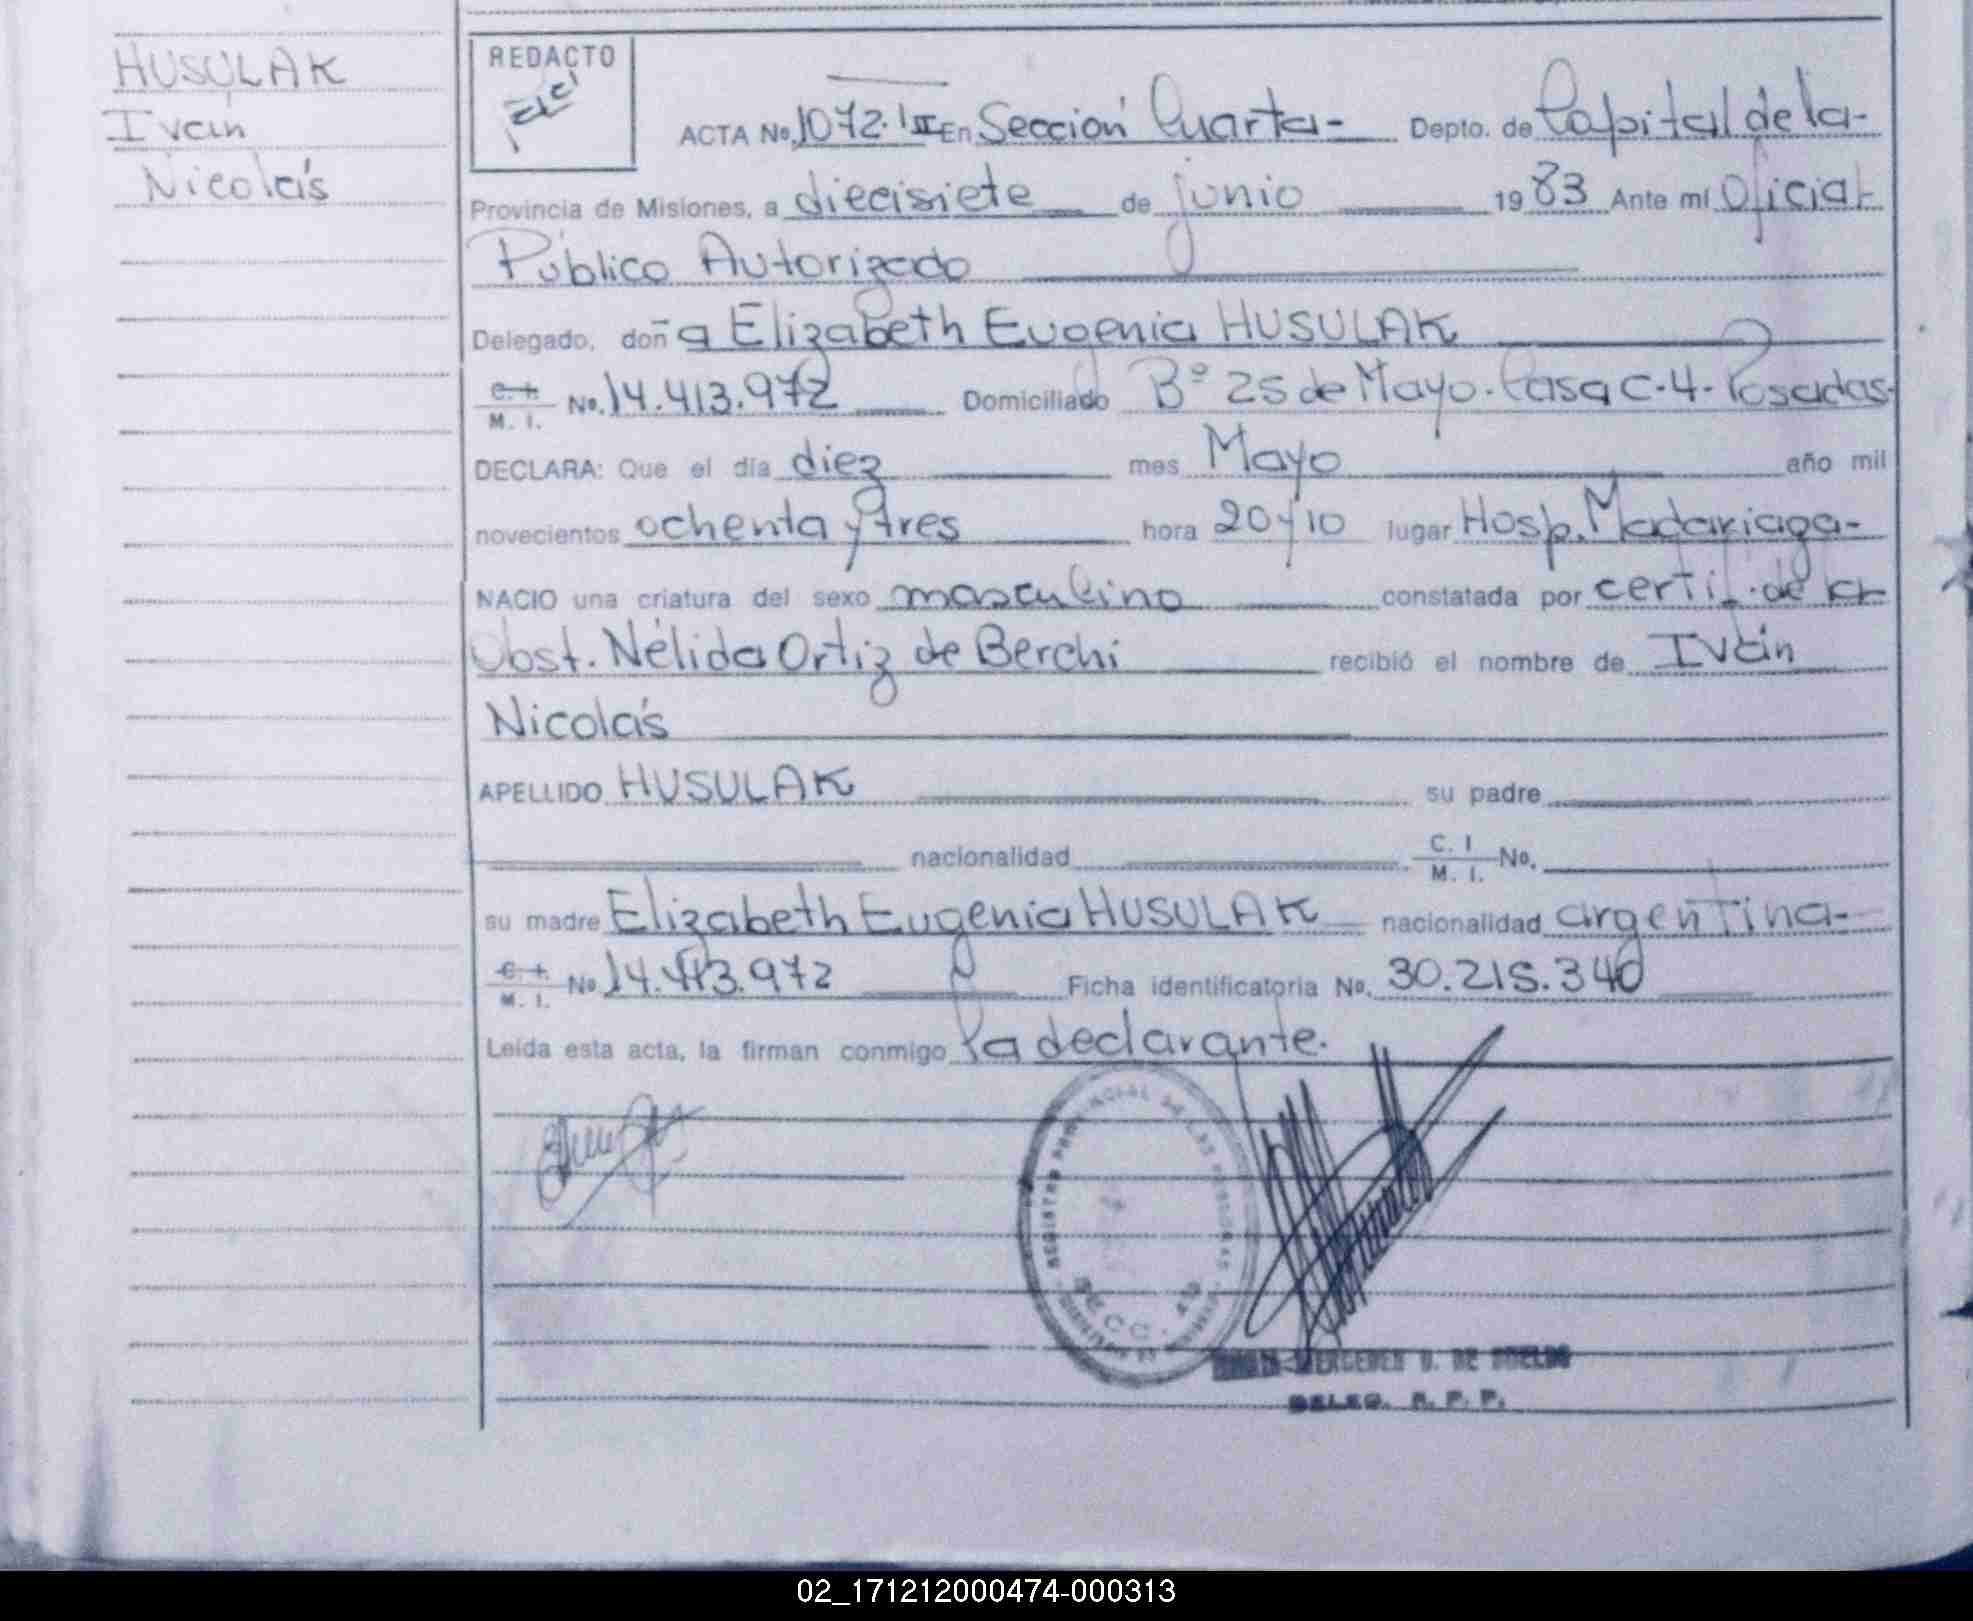 HUSULAK
Iván
Nicolás
REDACTO
ACTA No. 1072. III En Sección Cuarta- Depto. de Capital de la-
Provincia de Misiones, a diecisiete de junio 1983 Ante mí Oficial
Público Autorizado
Delegado, doña Elizabeth Eugenia HUSULAK
C. I. M. I. No. 14.413.972 Domiciliado Bº 25 de Mayo. Casa C-4- Posadas-
DECLARA: Que el día diez mes Mayo año mil
novecientos ochenta y tres hora 20 y 10 lugar Hosp. Madariaga-
NACIO una criatura del sexo masculino constatada por certif. de la
Obst. Nélida Ortiz de Berchi recibió el nombre de Iván
Nicolás
APELLIDO HUSULAK su padre
nacionalidad C. I M. I. No.
su madre Elizabeth Eugenia HUSULAK nacionalidad argentina-
C. I. M. I. No 14.413.972 Ficha identificatoria No. 30.215.340
Leída esta acta, la firman conmigo la declarante.
REGISTRO PROVINCIAL DE LAS PERSONAS
SECC. 4ta
MERCEDES D. DE
DELEG. R. P. P.
02_171212000474-000313